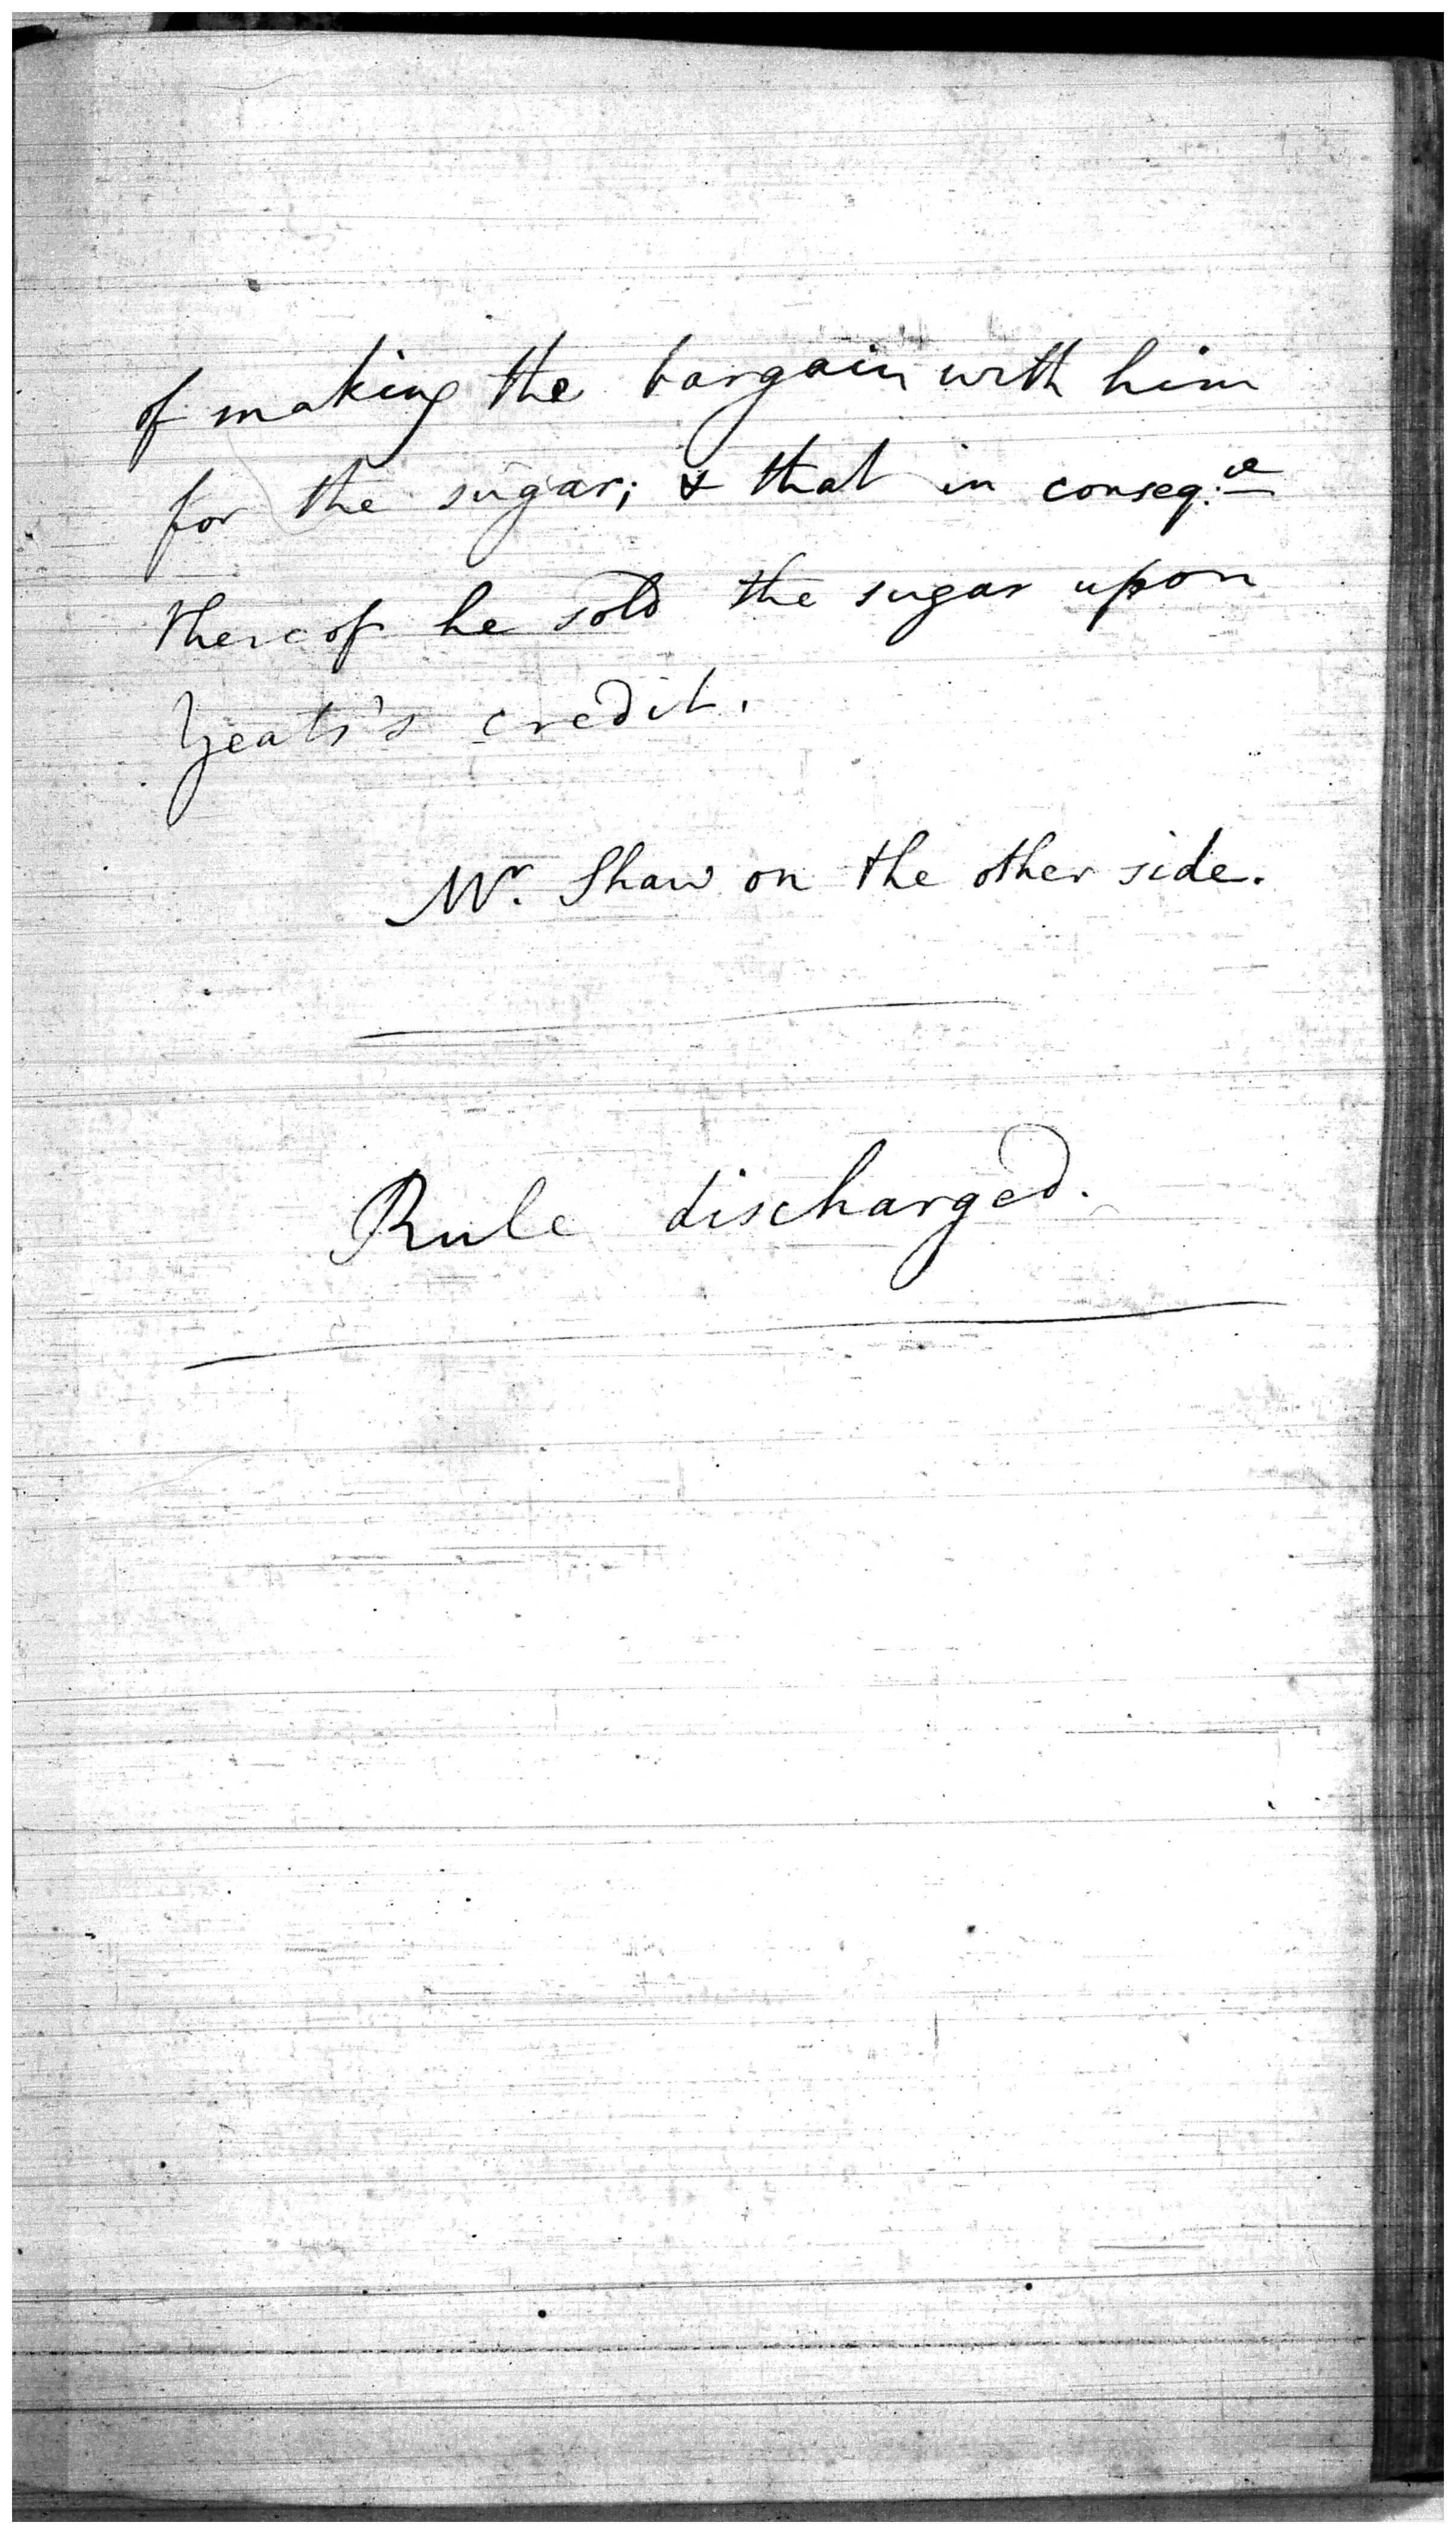 of making the bargain with him
for the sugar; & that in conseq:ce
thereof he sold the sugar upon
Yeats's credit.
Mr. Shaw on the other side.
Rule discharged.